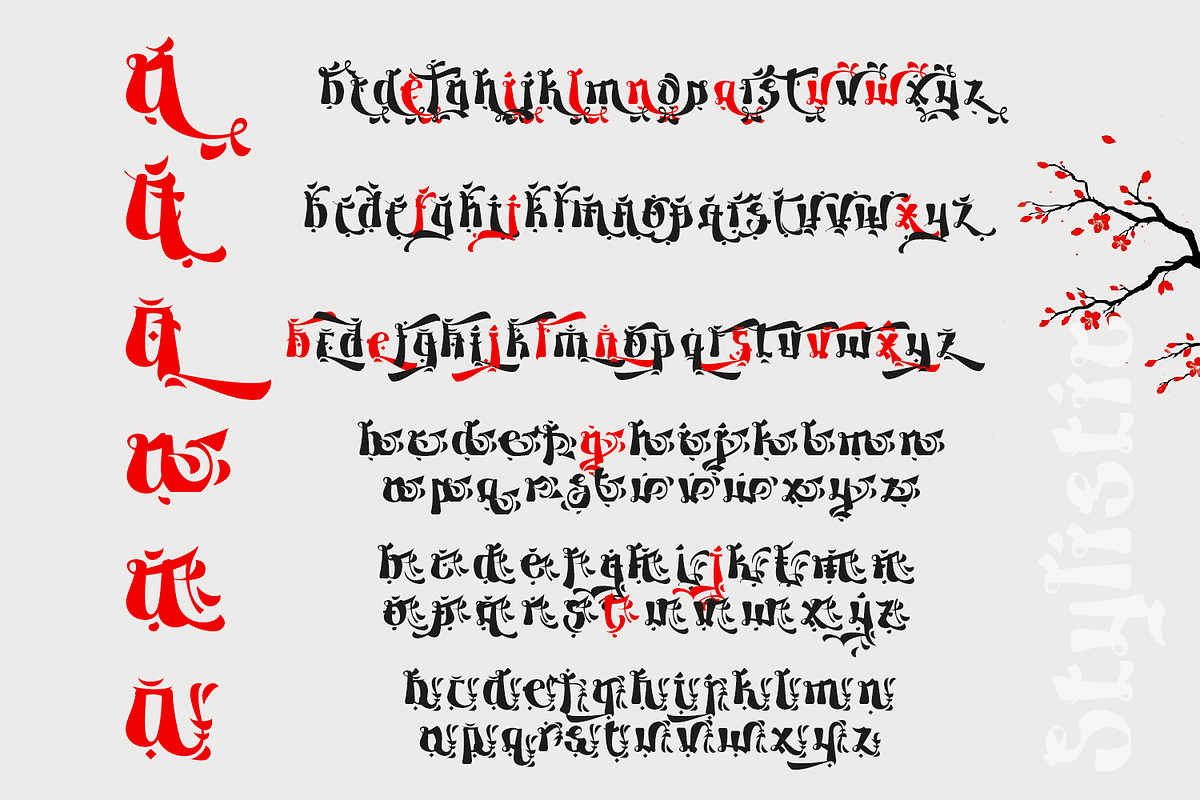 a bcdefghijklmnopqrstuvwxyz
a bcdefghijklmnopqrstuvwxyz
a bcdefghijklmnopqrstuvwxyz
a bcdefghijklmn
opqrstuvwxyz
a bcdefghijklmn
opqrstuvwxyz
a bcdefghijklmn
opqrstuvwxyz
Stylistic